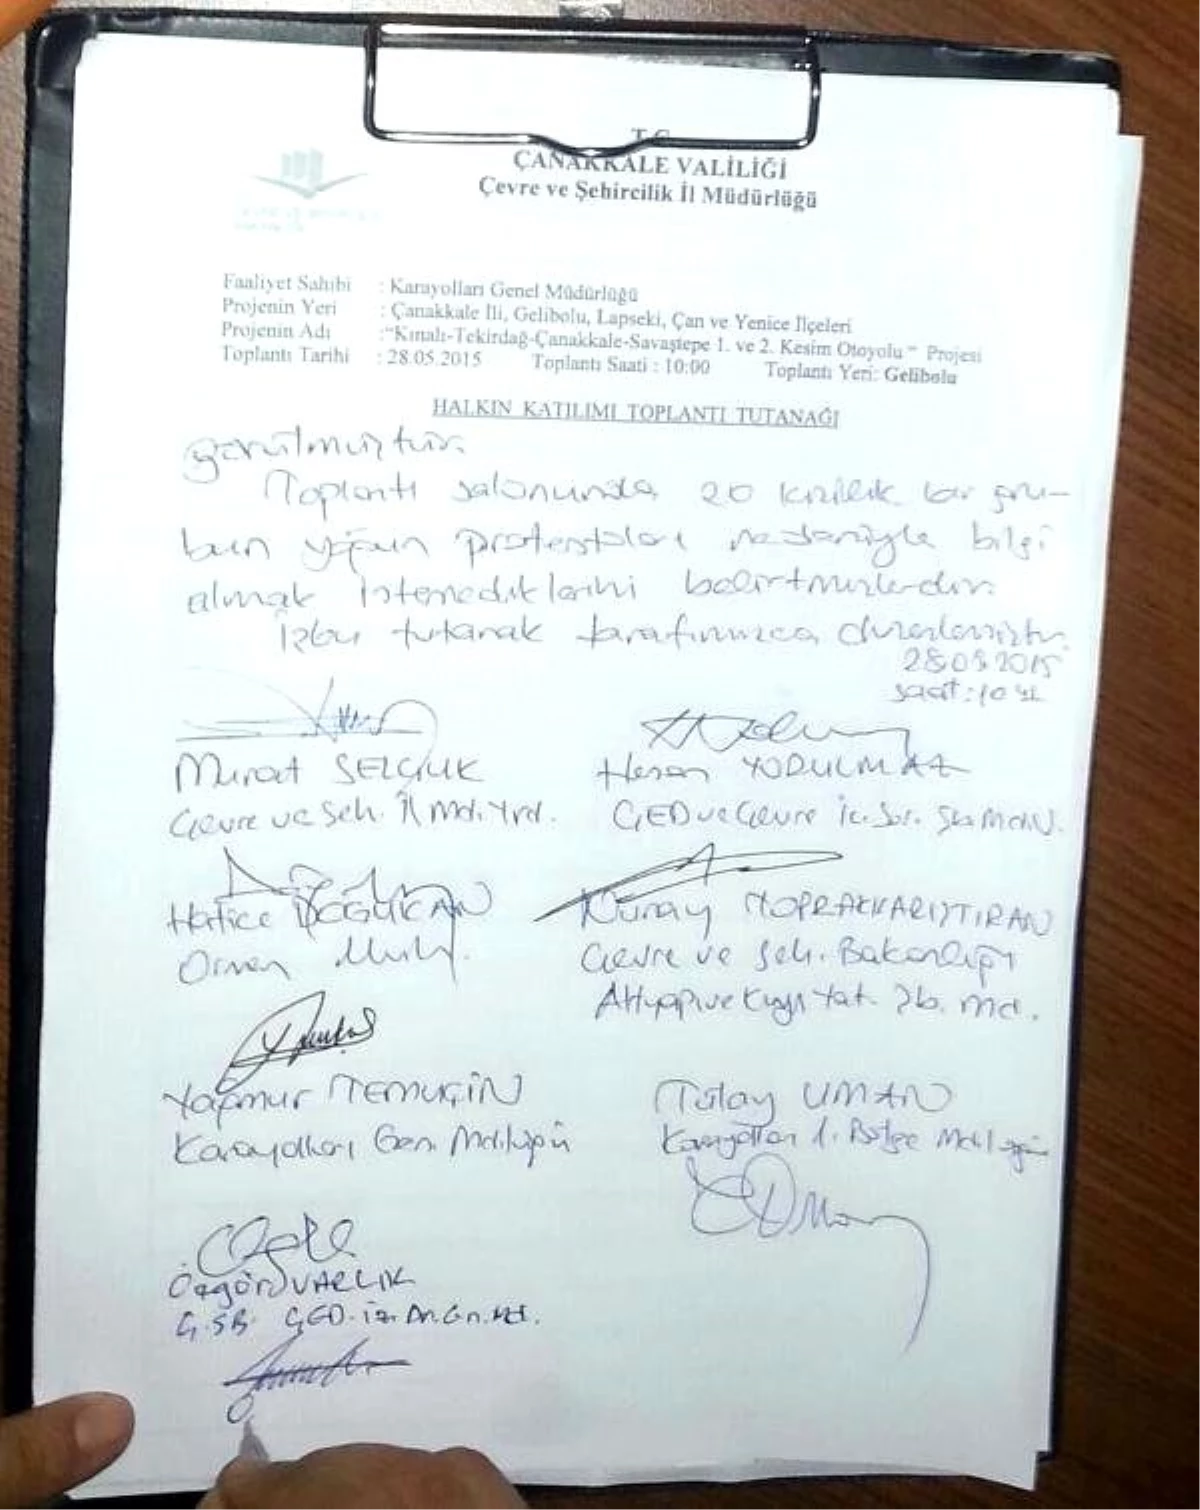 T.C.
ÇANAKKALE VALİLİĞİ
Çevre ve Şehircilik İl Müdürlüğü
Faaliyet Sahibi : Karayolları Genel Müdürlüğü
Projenin Yeri : Çanakkale İli, Gelibolu, Lapseki, Çan ve Yenice İlçeleri
Projenin Adı :"Kınalı-Tekirdağ-Çanakkale-Savaştepe 1. ve 2. Kesim Otoyolu " Projesi
Toplantı Tarihi : 28.05.2015 Toplantı Saati : 10:00 Toplantı Yeri: Gelibolu
HALKIN KATILIMI TOPLANTI TUTANAĞI
görülmüştür.
Toplantı salonunda 20 kişilik bir gru-
bun yoğun protestoları nedeniyle bilgi
almak istemediklerini belirtmişlerdir.
İşbu tutanak tarafımızca düzenlenmiştir.
28.05.2015
saat:10
Murat SELÇUK
Çevre ve Şeh. İl Md. Yrd.
Hasan YORULMAZ
ÇED ve Çevre İz. Md. V.
Hatice
Orman Müh.
Nuray TOPRAKKARIŞTIRAN
Çevre ve Şeh. Bakanlığı
Altyapı ve Kıyı Yat. Şb. Md.
Yağmur TEMUÇİN
Karayolları Gen. Müdürlüğü
Tülay UMAN
Karayolları 1. Bölge Müdürlüğü
Özgür VARLIK
Ç.Ş.B. ÇED. İz. Dn. Gn. Md.